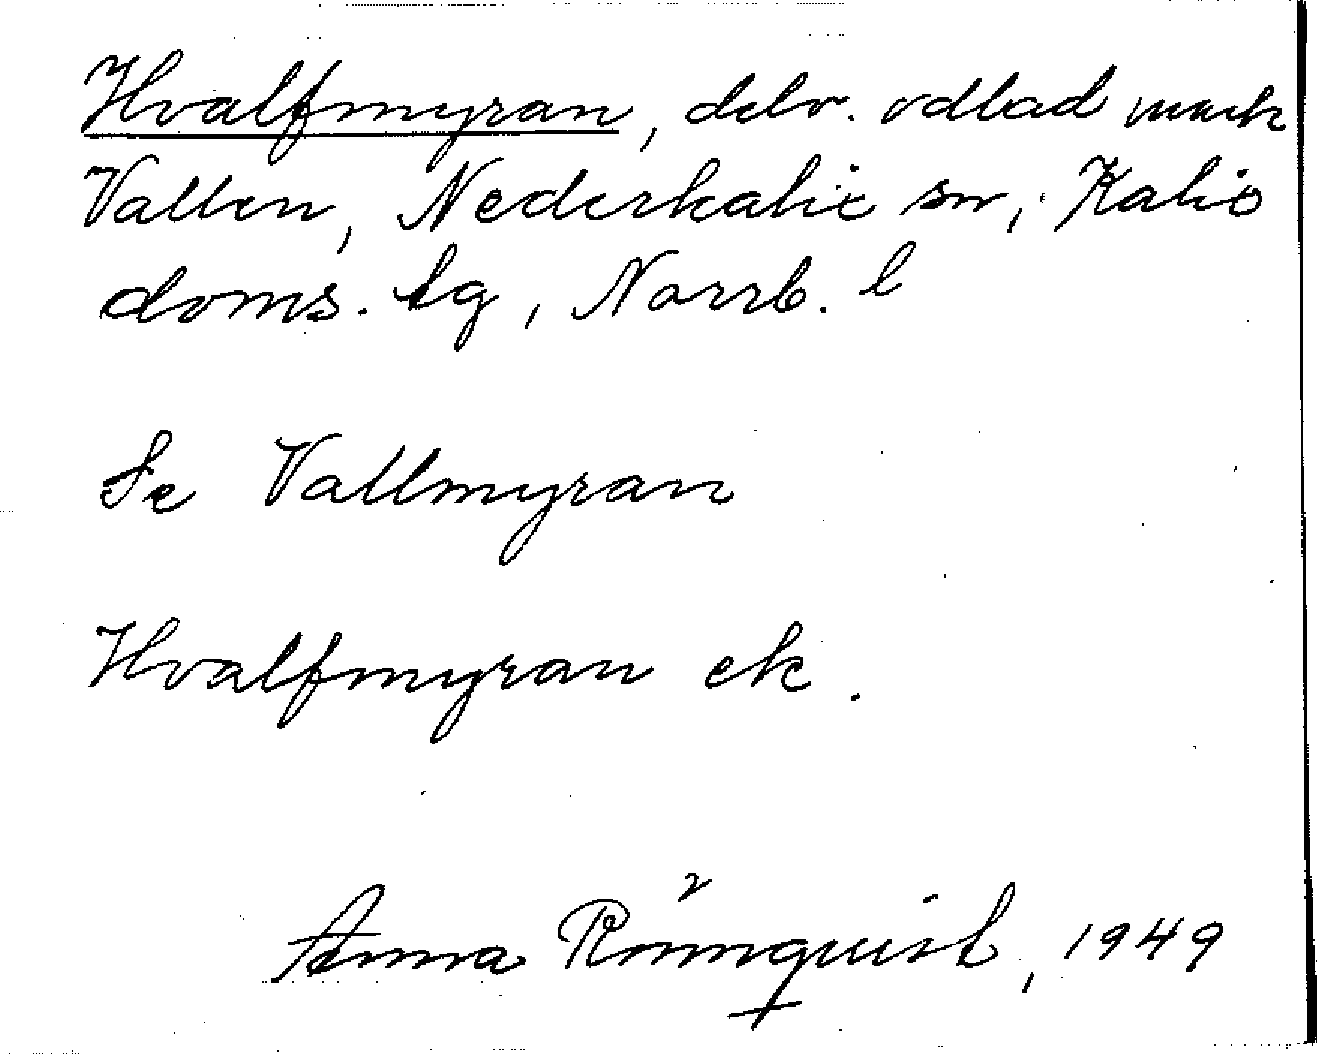 Hvalfmyran, delv. odlad mark
Vallen, Nederkalix sn, Kalix
doms. lag, Norrb. l
Se Vallmyran
Hvalfmyran ek.
Anna Rönnquist, 1949